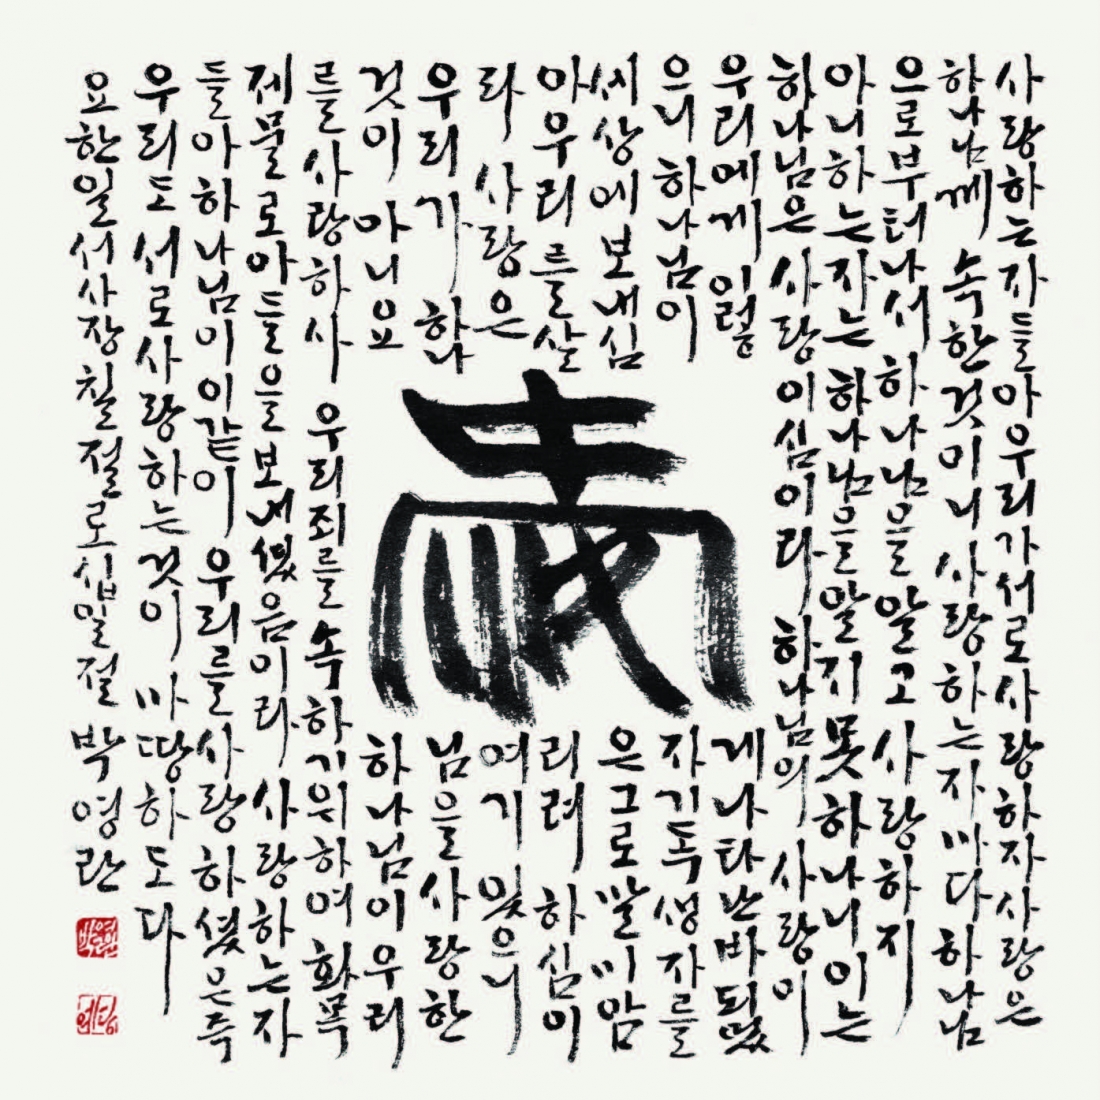 사랑하는자들아우리가서로사랑하자사랑은
하나님께 속한것이니사랑하는자마다하나님
으로부터나서 하나님을알고 사랑하지
아니하는자는 하나님을알지못하나니이는
하나님은사랑이심이라 하나님의 사랑이
우리에게 이렇
게나타난바되었
으니 하나님이
자기독생자를
세상에보내심
은그로말미암
아우리를살
리려 하심이
라 사랑은
여기 있으니
우리가 하나
님을사랑한
것이 아니요
하나님이우리
를사랑하사 우리죄를속하기위하여 화목
제물로아들을보내셨음이라 사랑하는자
들아하나님이이같이 우리를사랑하셨은즉
우리도서로사랑하는것이 마땅하도다
요한일서사장칠절로십일절 박영란